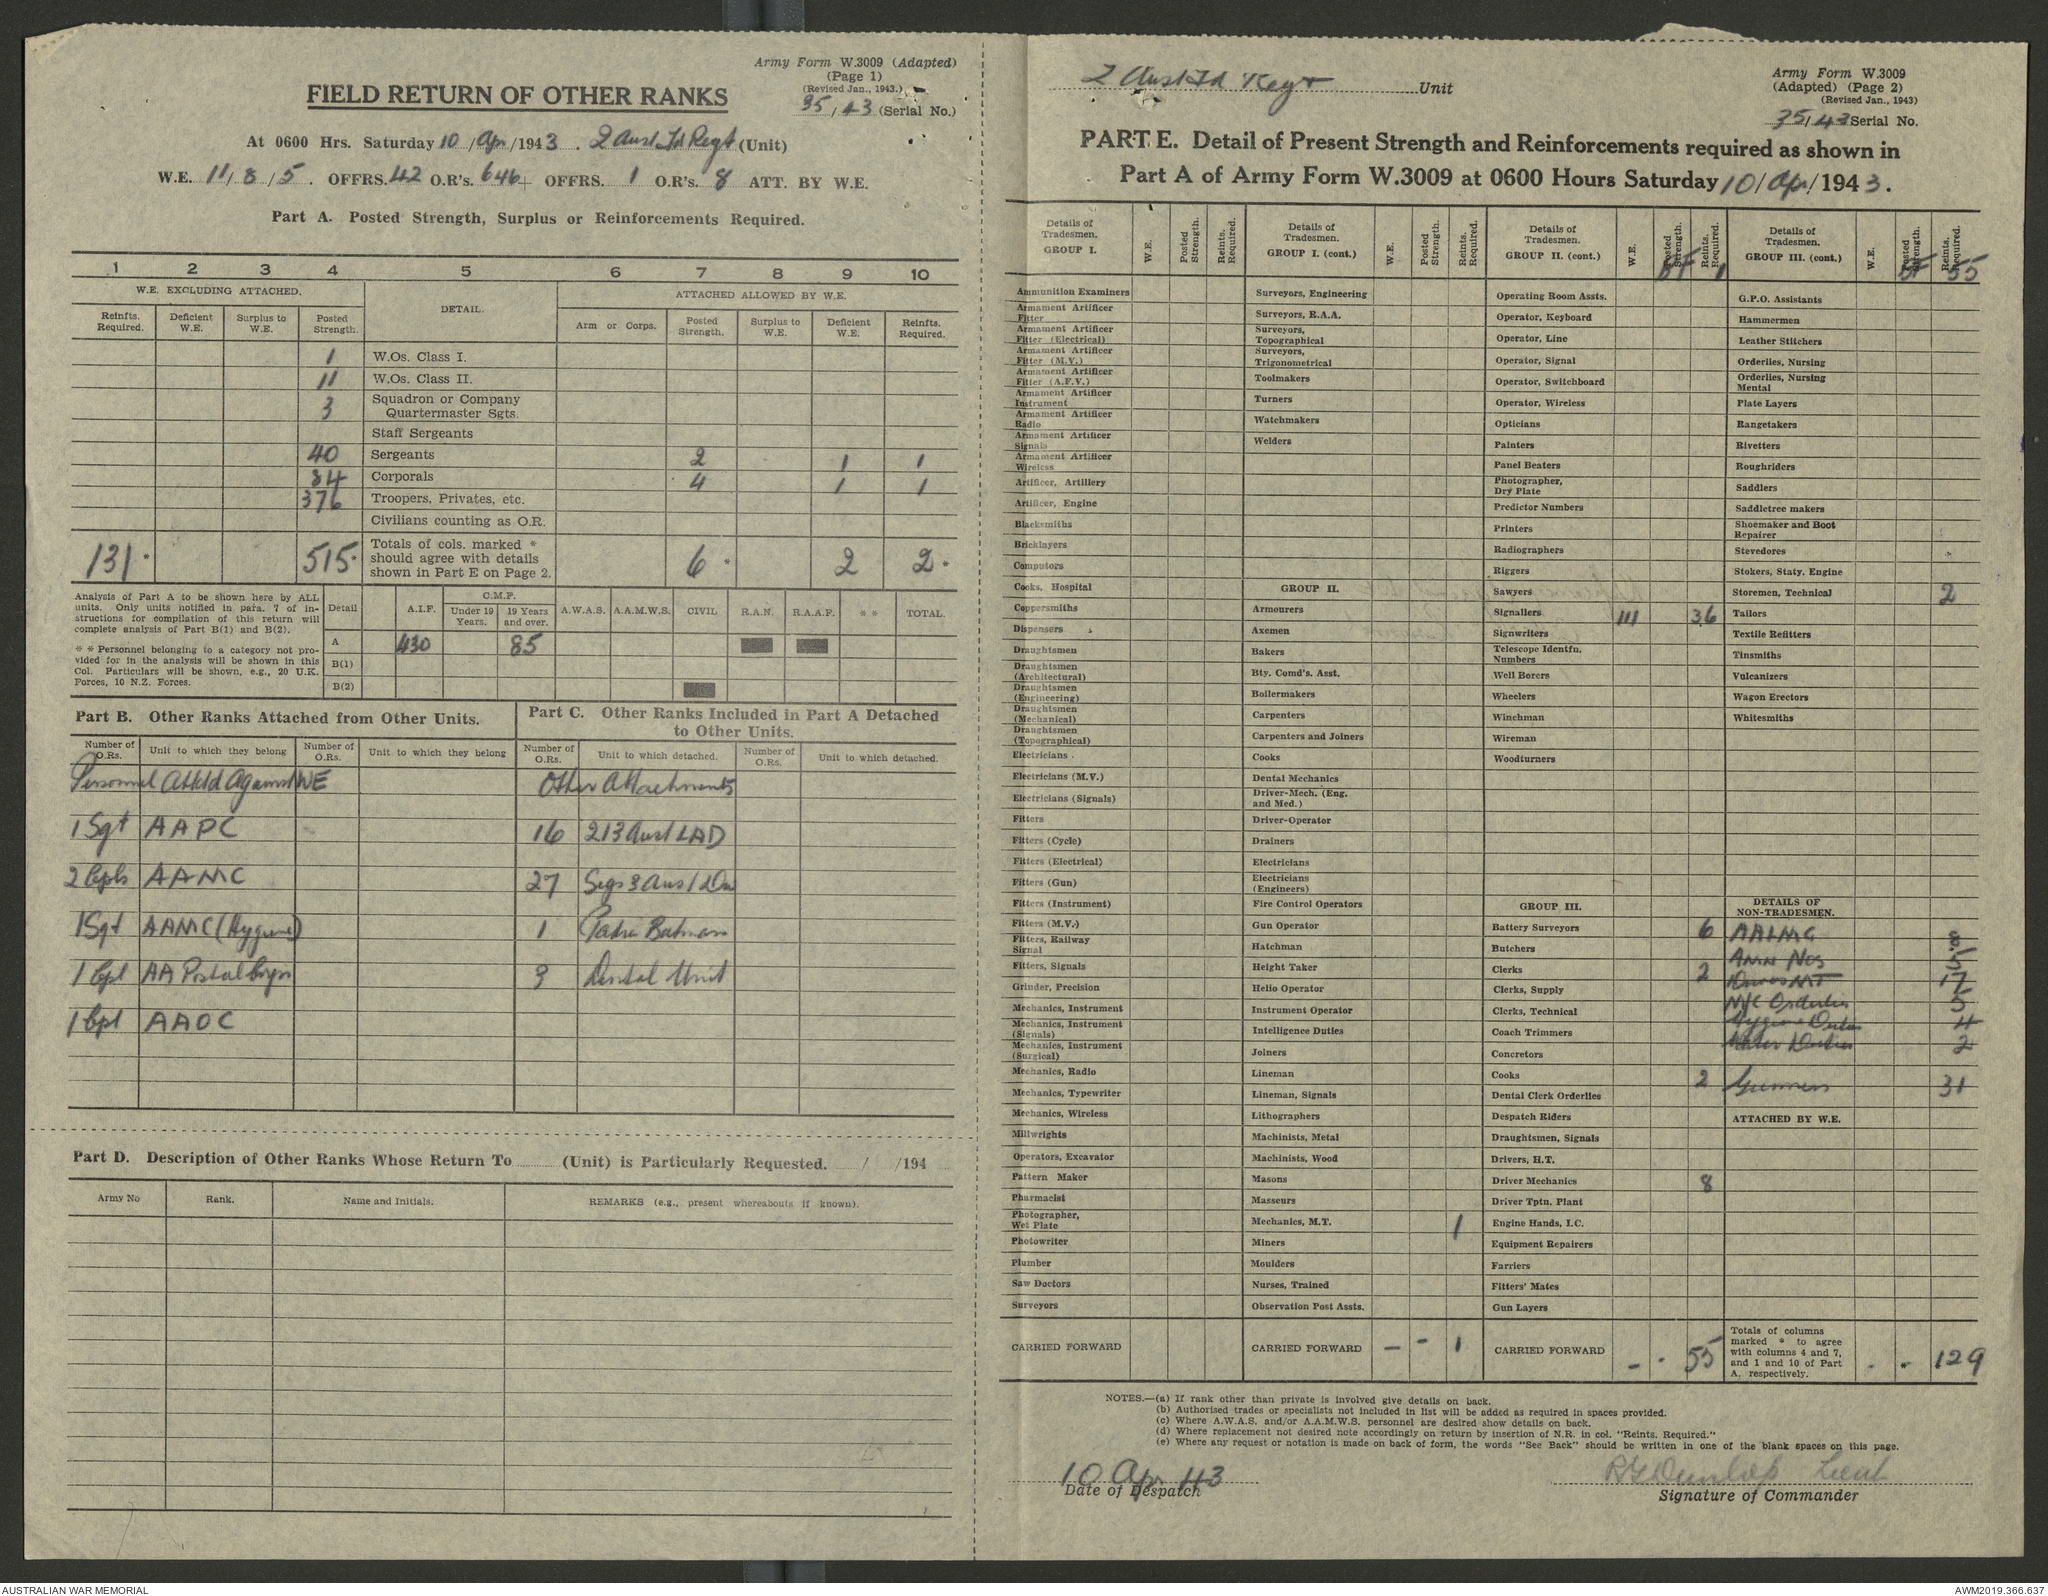 Army Form W.3009 (Adapted)
(Page 1)
(Revised Jan., 1943.)
35/43 (Serial No.)
FIELD RETURN OF OTHER RANKS
At 0600 Hrs. Saturday 10/Apr/1943. 2 Aust Fd Regt (Unit)
W.E. 11/8/5. OFFRS. 42 O.R's. 646+ OFFRS. 1 O.R's. 8 ATT. BY W.E.
Part A. Posted Strength, Surplus or Reinforcements Required.
1 2 3 4 5 6 7 8 9 10
W.E. EXCLUDING ATTACHED. DETAIL. ATTACHED ALLOWED BY W.E.
Reinfts. Required. Deficient W.E. Surplus to W.E. Posted Strength. Arm or Corps. Posted Strength. Surplus to W.E. Deficient W.E. Reinfts. Required.
1 W.Os. Class I.
11 W.Os. Class II.
3 Squadron or Company Quartermaster Sgts.
Staff Sergeants
40 Sergeants 2 1 1
84 Corporals 4 1 1
376 Troopers, Privates, etc.
Civilians counting as O.R.
131* 515* Totals of cols. marked * should agree with details shown in Part E on Page 2. 6* 2 2*
Analysis of Part A to be shown here by ALL units. Only units notified in para. 7 of instructions for compilation of this return will complete analysis of Part B(1) and B(2).
* * Personnel belonging to a category not provided for in the analysis will be shown in this Col. Particulars will be shown, e.g., 20 U.K. Forces, 10 N.Z. Forces.
Detail A.I.F. C.M.F. Under 19 Years. 19 Years and over. A.W.A.S. A.A.M.W.S. CIVIL R.A.N. R.A.A.F. * * TOTAL.
A 430 85
B(1)
B(2)
Part B. Other Ranks Attached from Other Units.
Number of O.Rs. Unit to which they belong Number of O.Rs. Unit to which they belong
Personnel Attchd Against WE
1 Sgt AAPC
2 Cpls AAMC
1 Sgt AAMC (Hygiene)
1 Cpl AA Postal Corps
1 Cpl AAOC
Part C. Other Ranks Included in Part A Detached to Other Units.
Number of O.Rs. Unit to which detached. Number of O.Rs. Unit to which detached.
Other Attachments
16 213 Aust LAD
27 Sigs 3 Aust Div
1 Padre Batman
3 Dental Unit
Part D. Description of Other Ranks Whose Return To (Unit) is Particularly Requested. / /194
Army No Rank. Name and Initials. REMARKS (e.g., present whereabouts if known).
2 Aust Fd Regt Unit
Army Form W.3009
(Adapted) (Page 2)
(Revised Jan., 1943)
35/43 Serial No.
PART E. Detail of Present Strength and Reinforcements required as shown in
Part A of Army Form W.3009 at 0600 Hours Saturday 10/Apr/1943.
Details of Tradesmen. GROUP I. W.E. Posted Strength. Reints. Required.
Ammunition Examiners
Armament Artificer Fitter
Armament Artificer Fitter (Electrical)
Armament Artificer Fitter (M.V.)
Armament Artificer Fitter (A.F.V.)
Armament Artificer Instrument
Armament Artificer Radio
Armament Artificer Signals
Armament Artificer Wireless
Artificer, Artillery
Artificer, Engine
Blacksmiths
Bricklayers
Computors
Cooks, Hospital
Coppersmiths
Dispensers
Draughtsmen
Draughtsmen (Architectural)
Draughtsmen (Engineering)
Draughtsmen (Mechanical)
Draughtsmen (Topographical)
Electricians
Electricians (M.V.)
Electricians (Signals)
Fitters
Fitters (Cycle)
Fitters (Electrical)
Fitters (Gun)
Fitters (Instrument)
Fitters (M.V.)
Fitters, Railway Signal
Fitters, Signals
Grinder, Precision
Mechanics, Instrument
Mechanics, Instrument (Signals)
Mechanics, Instrument (Surgical)
Mechanics, Radio
Mechanics, Typewriter
Mechanics, Wireless
Millwrights
Operators, Excavator
Pattern Maker
Pharmacist
Photographer, Wet Plate
Photowriter
Plumber
Saw Doctors
Surveyors
CARRIED FORWARD
Details of Tradesmen. GROUP I. (cont.) W.E. Posted Strength. Reints. Required.
Surveyors, Engineering
Surveyors, R.A.A.
Surveyors, Topographical
Surveyors, Trigonometrical
Toolmakers
Turners
Watchmakers
Welders
GROUP II.
Armourers
Axemen
Bakers
Bty. Comd's. Asst.
Boilermakers
Carpenters
Carpenters and Joiners
Cooks
Dental Mechanics
Driver-Mech. (Eng. and Med.)
Driver-Operator
Drainers
Electricians
Electricians (Engineers)
Fire Control Operators
Gun Operator
Hatchman
Height Taker
Helio Operator
Instrument Operator
Intelligence Duties
Joiners
Lineman
Lineman, Signals
Lithographers
Machinists, Metal
Machinists, Wood
Masons
Masseurs
Mechanics, M.T. 1
Miners
Moulders
Nurses, Trained
Observation Post Assts.
CARRIED FORWARD - - 1
Details of Tradesmen. GROUP II. (cont.) W.E. Posted Strength. Reints. Required.
BF 1
Operating Room Assts.
Operator, Keyboard
Operator, Line
Operator, Signal
Operator, Switchboard
Operator, Wireless
Opticians
Painters
Panel Beaters
Photographer, Dry Plate
Predictor Numbers
Printers
Radiographers
Riggers
Sawyers
Signallers 111 36
Signwriters
Telescope Identfn. Numbers
Well Borers
Wheelers
Winchman
Wireman
Woodturners
GROUP III.
Battery Surveyors 6
Butchers
Clerks 2
Clerks, Supply
Clerks, Technical
Coach Trimmers
Concretors
Cooks 2
Dental Clerk Orderlies
Despatch Riders
Draughtsmen, Signals
Drivers, H.T.
Driver Mechanics 8
Driver Tptn. Plant
Engine Hands, I.C.
Equipment Repairers
Farriers
Fitters' Mates
Gun Layers
CARRIED FORWARD - - 55
Details of Tradesmen. GROUP III. (cont.) W.E. Posted Strength. Reints. Required.
BF 55
G.P.O. Assistants
Hammermen
Leather Stitchers
Orderlies, Nursing
Orderlies, Nursing Mental
Plate Layers
Rangetakers
Rivetters
Roughriders
Saddlers
Saddletree makers
Shoemaker and Boot Repairer
Stevedores
Stokers, Staty. Engine
Storemen, Technical 2
Tailors
Textile Refitters
Tinsmiths
Vulcanizers
Wagon Erectors
Whitesmiths
DETAILS OF NON-TRADESMEN.
AALMG 8
Amn Nos 5
Drivers MT 17
M/C Orderlies 5
Hygiene Duties 4
Water Duties 2
Gunners 31
ATTACHED BY W.E.
Totals of columns marked * to agree with columns 4 and 7, and 1 and 10 of Part A. respectively. - * 129
NOTES.—(a) If rank other than private is involved give details on back.
(b) Authorised trades or specialists not included in list will be added as required in spaces provided.
(c) Where A.W.A.S. and/or A.A.M.W.S. personnel are desired show details on back.
(d) Where replacement not desired note accordingly on return by insertion of N.R. in col. "Reints. Required."
(e) Where any request or notation is made on back of form, the words "See Back" should be written in one of the blank spaces on this page.
10 Apr 43
Date of Despatch
RGDunlop Lieut
Signature of Commander
AUSTRALIAN WAR MEMORIAL
AWM2019.366.637